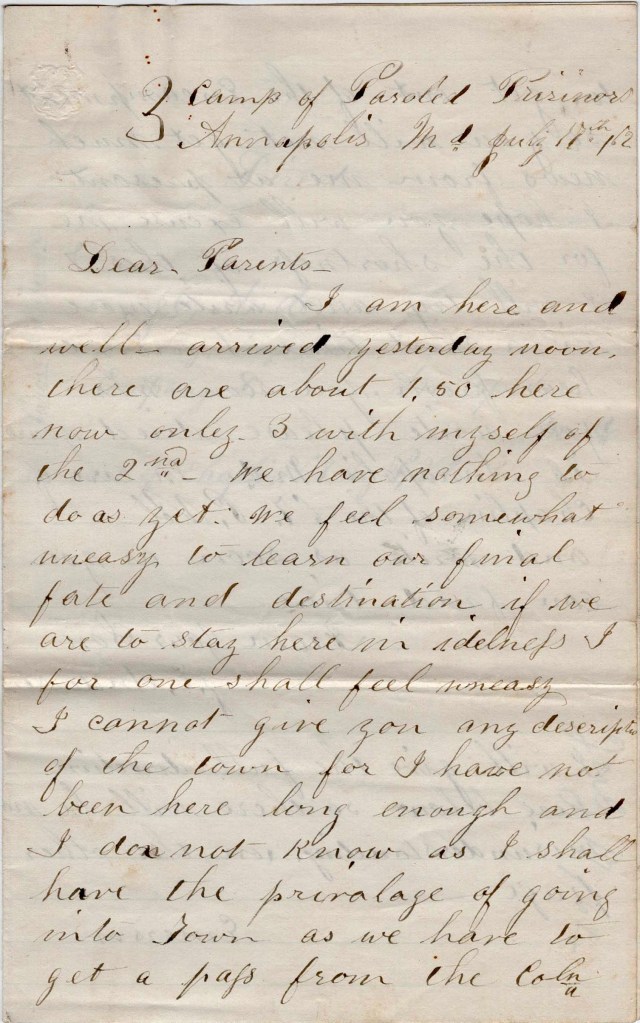 Camp of Paroled Prisinors
Annapolis Md July 17th /62
Dear Parents
I am here and
well arrived yesterday noon.
there are about 1,50 here
now onley 3 with myself of
the 2nd We have nothing to
do as yet. We feel somewhat
uneasy to learn our final
fate and destination if we
are to stay here in idelness I
for one shall feel uneasy
I cannot give you any descriptio
of the town for I have not
been here long enough and
I don not know as I shall
have the privalage of going
into Town as we have to
get a pass from the Coln